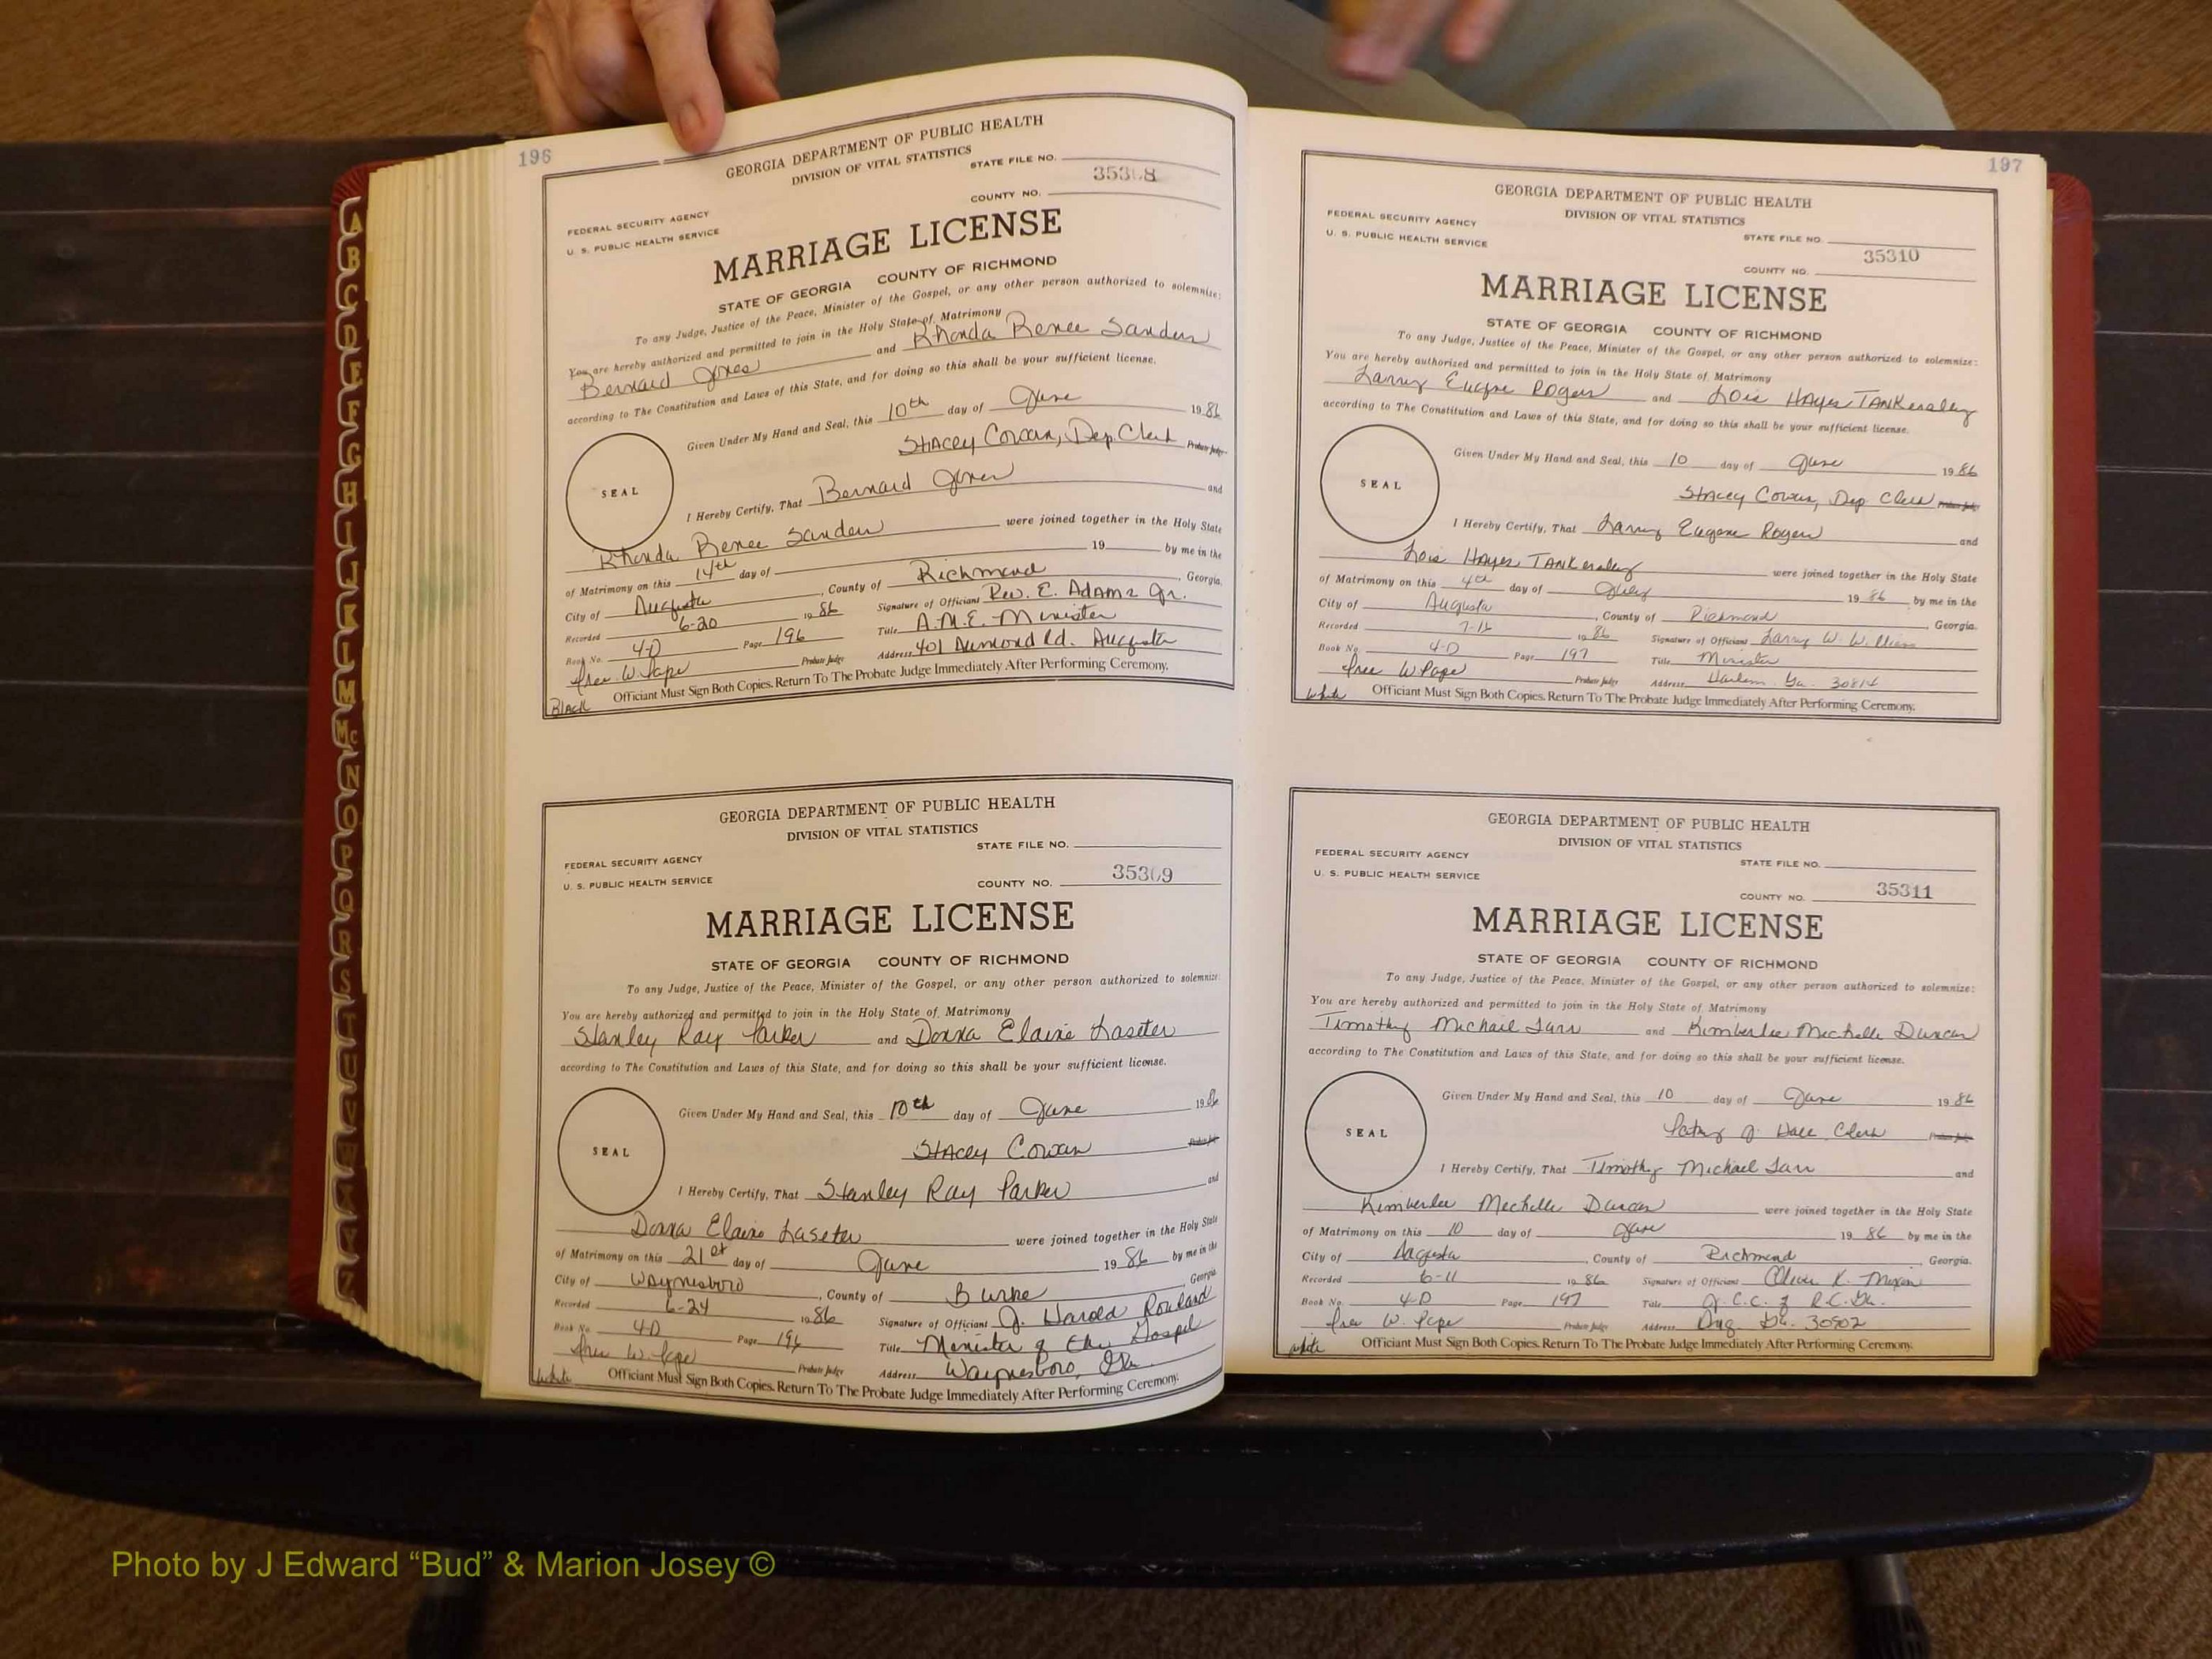 196
GEORGIA DEPARTMENT OF PUBLIC HEALTH
DIVISION OF VITAL STATISTICS
STATE FILE NO.
35308
COUNTY NO.
FEDERAL SECURITY AGENCY
U. S. PUBLIC HEALTH SERVICE
MARRIAGE LICENSE
STATE OF GEORGIA COUNTY OF RICHMOND
To any Judge, Justice of the Peace, Minister of the Gospel, or any other person authorized to solemnize:
You are hereby authorized and permitted to join in the Holy State of Matrimony
Bernard Jones and Rhonda Renee Sanders
according to The Constitution and Laws of this State, and for doing so this shall be your sufficient license.
Given Under My Hand and Seal, this 10th day of June 1986
Stacey Cowan, Dep. Clerk Probate Judge
SEAL
I Hereby Certify, That Bernard Jones and
Rhonda Renee Sanders were joined together in the Holy State
of Matrimony on this 14th day of 19 by me in the
City of Augusta, County of Richmond, Georgia.
Recorded 6-20 1986 Signature of Officiant Rev. E. Adams Jr.
Book No. 4-D Page 196 Title A.M.E. Minister
W. Pape Probate Judge Address 401 Aumond Rd. Augusta
Officiant Must Sign Both Copies. Return To The Probate Judge Immediately After Performing Ceremony.
Black
GEORGIA DEPARTMENT OF PUBLIC HEALTH
DIVISION OF VITAL STATISTICS
STATE FILE NO.
FEDERAL SECURITY AGENCY
U. S. PUBLIC HEALTH SERVICE
COUNTY NO. 35309
MARRIAGE LICENSE
STATE OF GEORGIA COUNTY OF RICHMOND
To any Judge, Justice of the Peace, Minister of the Gospel, or any other person authorized to solemnize:
You are hereby authorized and permitted to join in the Holy State of Matrimony
Stanley Ray Parker and Donna Elaine Laseter
according to The Constitution and Laws of this State, and for doing so this shall be your sufficient license.
Given Under My Hand and Seal, this 10th day of June 1986
Stacey Cowan
SEAL
I Hereby Certify, That Stanley Ray Parker and
Donna Elaine Laseter were joined together in the Holy State
of Matrimony on this 21st day of June 1986 by me in the
City of Waynesboro, County of Burke, Georgia
Recorded 6-24 1986 Signature of Officiant J. Harold Rowland
Book No. 4-D Page 196 Title Minister of the Gospel
W. Pape Probate Judge Address Waynesboro, Ga.
Officiant Must Sign Both Copies. Return To The Probate Judge Immediately After Performing Ceremony.
White
197
GEORGIA DEPARTMENT OF PUBLIC HEALTH
DIVISION OF VITAL STATISTICS
FEDERAL SECURITY AGENCY
U. S. PUBLIC HEALTH SERVICE
STATE FILE NO.
35310
COUNTY NO.
MARRIAGE LICENSE
STATE OF GEORGIA COUNTY OF RICHMOND
To any Judge, Justice of the Peace, Minister of the Gospel, or any other person authorized to solemnize:
You are hereby authorized and permitted to join in the Holy State of Matrimony
Larry Eugene Rogers and Lois Hayes Tankersley
according to The Constitution and Laws of this State, and for doing so this shall be your sufficient license.
Given Under My Hand and Seal, this 10 day of June 1986
Stacey Cowan, Dep. Clerk Probate Judge
SEAL
I Hereby Certify, That Larry Eugene Rogers and
Lois Hayes Tankersley were joined together in the Holy State
of Matrimony on this 4th day of July 1986 by me in the
City of Augusta, County of Richmond, Georgia.
Recorded 1986 Signature of Officiant Larry W.
Book No. 4-D Page 197 Title Minister
W Pape Probate Judge Address Harlem Ga. 30814
Officiant Must Sign Both Copies. Return To The Probate Judge Immediately After Performing Ceremony.
White
GEORGIA DEPARTMENT OF PUBLIC HEALTH
DIVISION OF VITAL STATISTICS
FEDERAL SECURITY AGENCY
U. S. PUBLIC HEALTH SERVICE
STATE FILE NO.
COUNTY NO. 35311
MARRIAGE LICENSE
STATE OF GEORGIA COUNTY OF RICHMOND
To any Judge, Justice of the Peace, Minister of the Gospel, or any other person authorized to solemnize:
You are hereby authorized and permitted to join in the Holy State of Matrimony
Timothy Michael and Kimberlee Mechelle Duncan
according to The Constitution and Laws of this State, and for doing so this shall be your sufficient license.
Given Under My Hand and Seal, this 10 day of June 1986
J. Hall Clerk
SEAL
I Hereby Certify, That Timothy Michael and
Kimberlee Mechelle Duncan were joined together in the Holy State
of Matrimony on this 10 day of June 1986 by me in the
City of Augusta, County of Richmond, Georgia.
Recorded 6-11 1986 Signature of Officiant Oliver K. Mixon
Book No. 4-D Page 197 Title J.C.C. of R.C. Ga.
W. Pape Probate Judge Address Aug. Ga. 30902
Officiant Must Sign Both Copies. Return To The Probate Judge Immediately After Performing Ceremony.
White
A
B
C
D
E
F
G
H
I
J
K
L
M
Mc
N
O
P
Q
R
S
T
U
V
W
Photo by J Edward “Bud” & Marion Josey ©